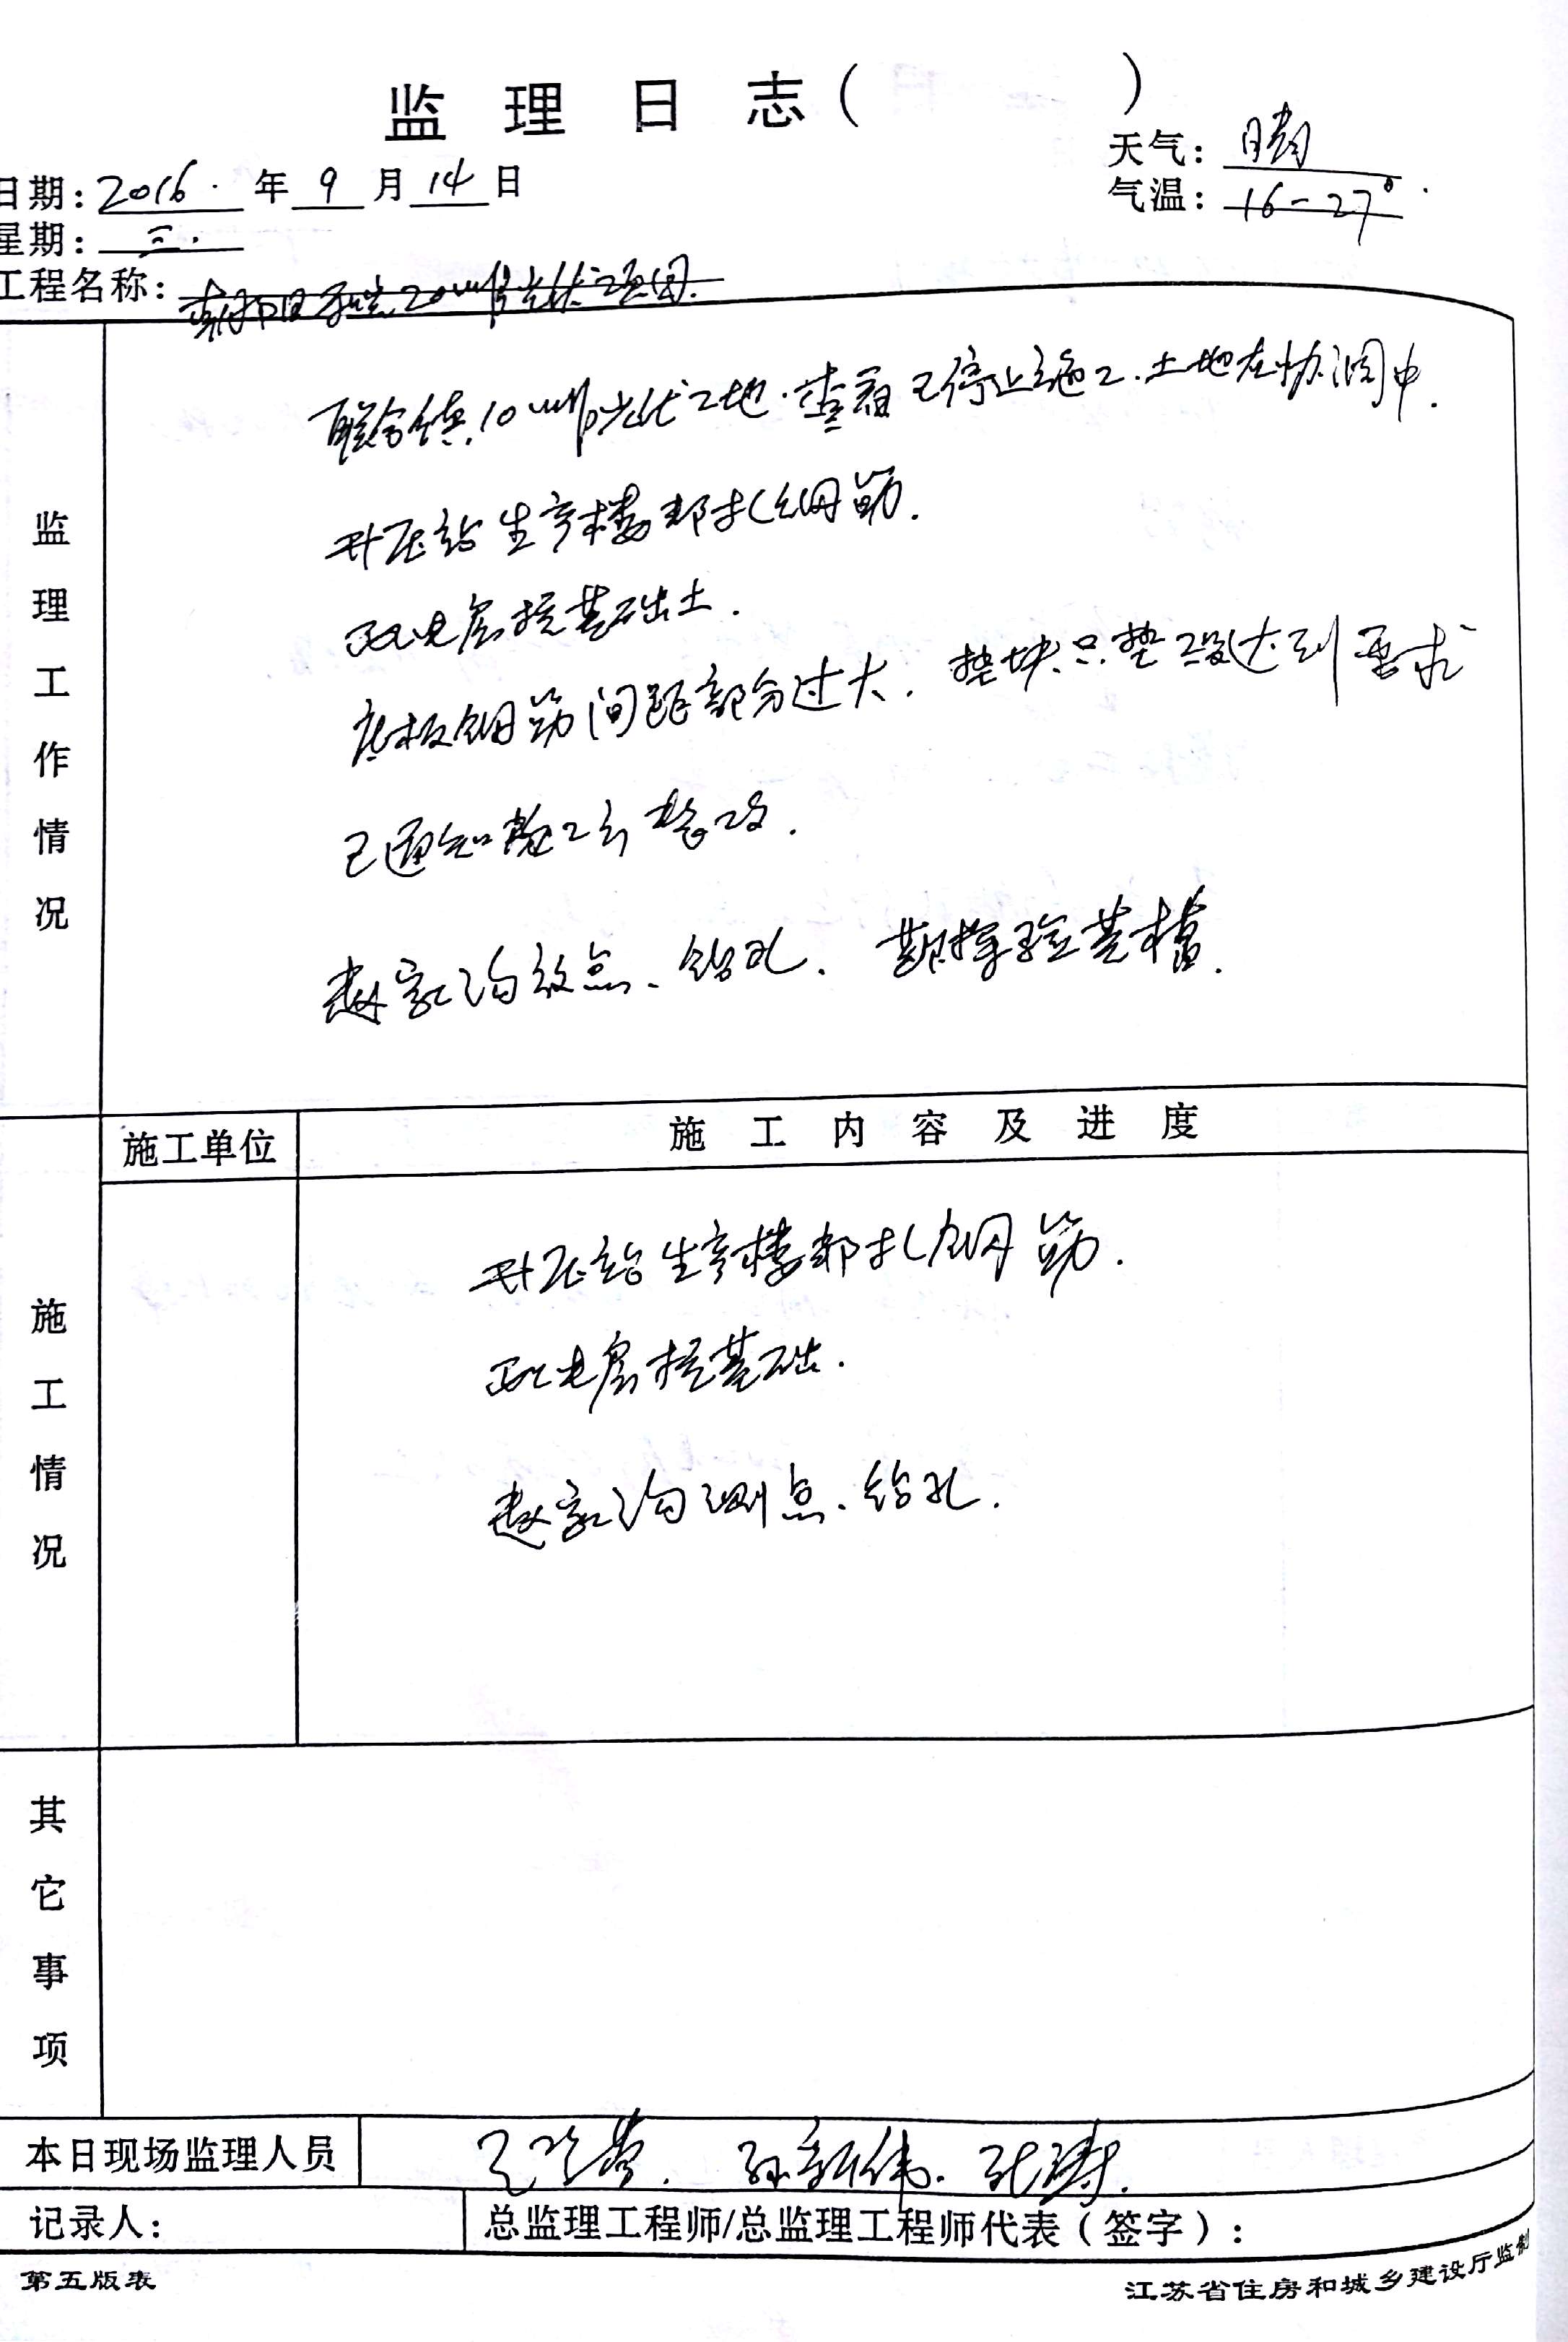 监理日志（ ）
天气：晴
日期：2016.年9月14日
气温：16-27°.
星期：三.
工程名称：朝阳 20MWp光伏项目.
监理工作情况
联合镇.10MWp光伏工地.查看已停止施工.土地在协调中.
升压站生产楼绑扎钢筋.
配电房挖基础土.
底板钢筋间距部分过大.垫块只垫 没达到要求
已通知施工方整改.
赵家沟放点、钻孔. 验基槽.
施工单位
施工内容及进度
施工情况
升压站生产楼绑扎钢筋.
配电房挖基础.
赵家沟测点、钻孔.
其它事项
本日现场监理人员 孙新伟.张涛.
记录人：
总监理工程师/总监理工程师代表（签字）：
第五版表
江苏省住房和城乡建设厅监制